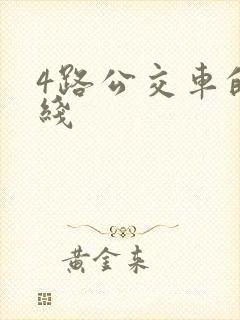 4路公交車的
綫
黃金来